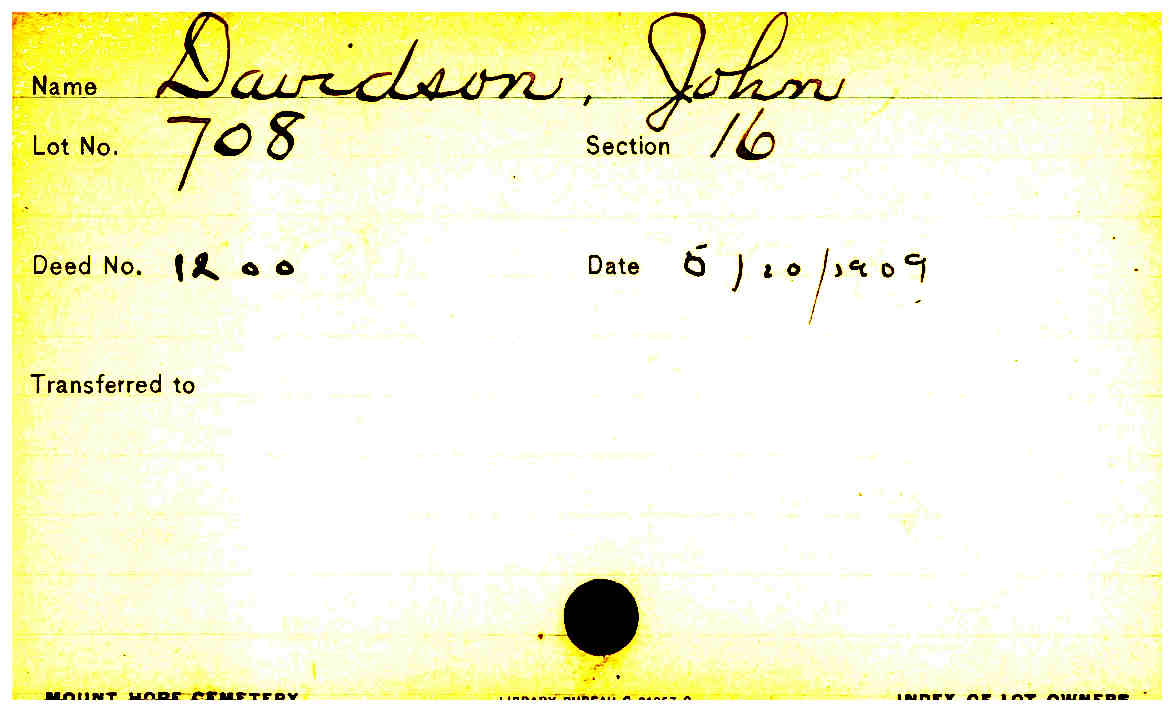 Name Davidson, John
Lot No. 708 Section 16
Deed No. 1200 Date 5/10/1909
Transferred to
MOUNT HOPE CEMETERY LIBRARY BUREAU INDEX OF LOT OWNERS